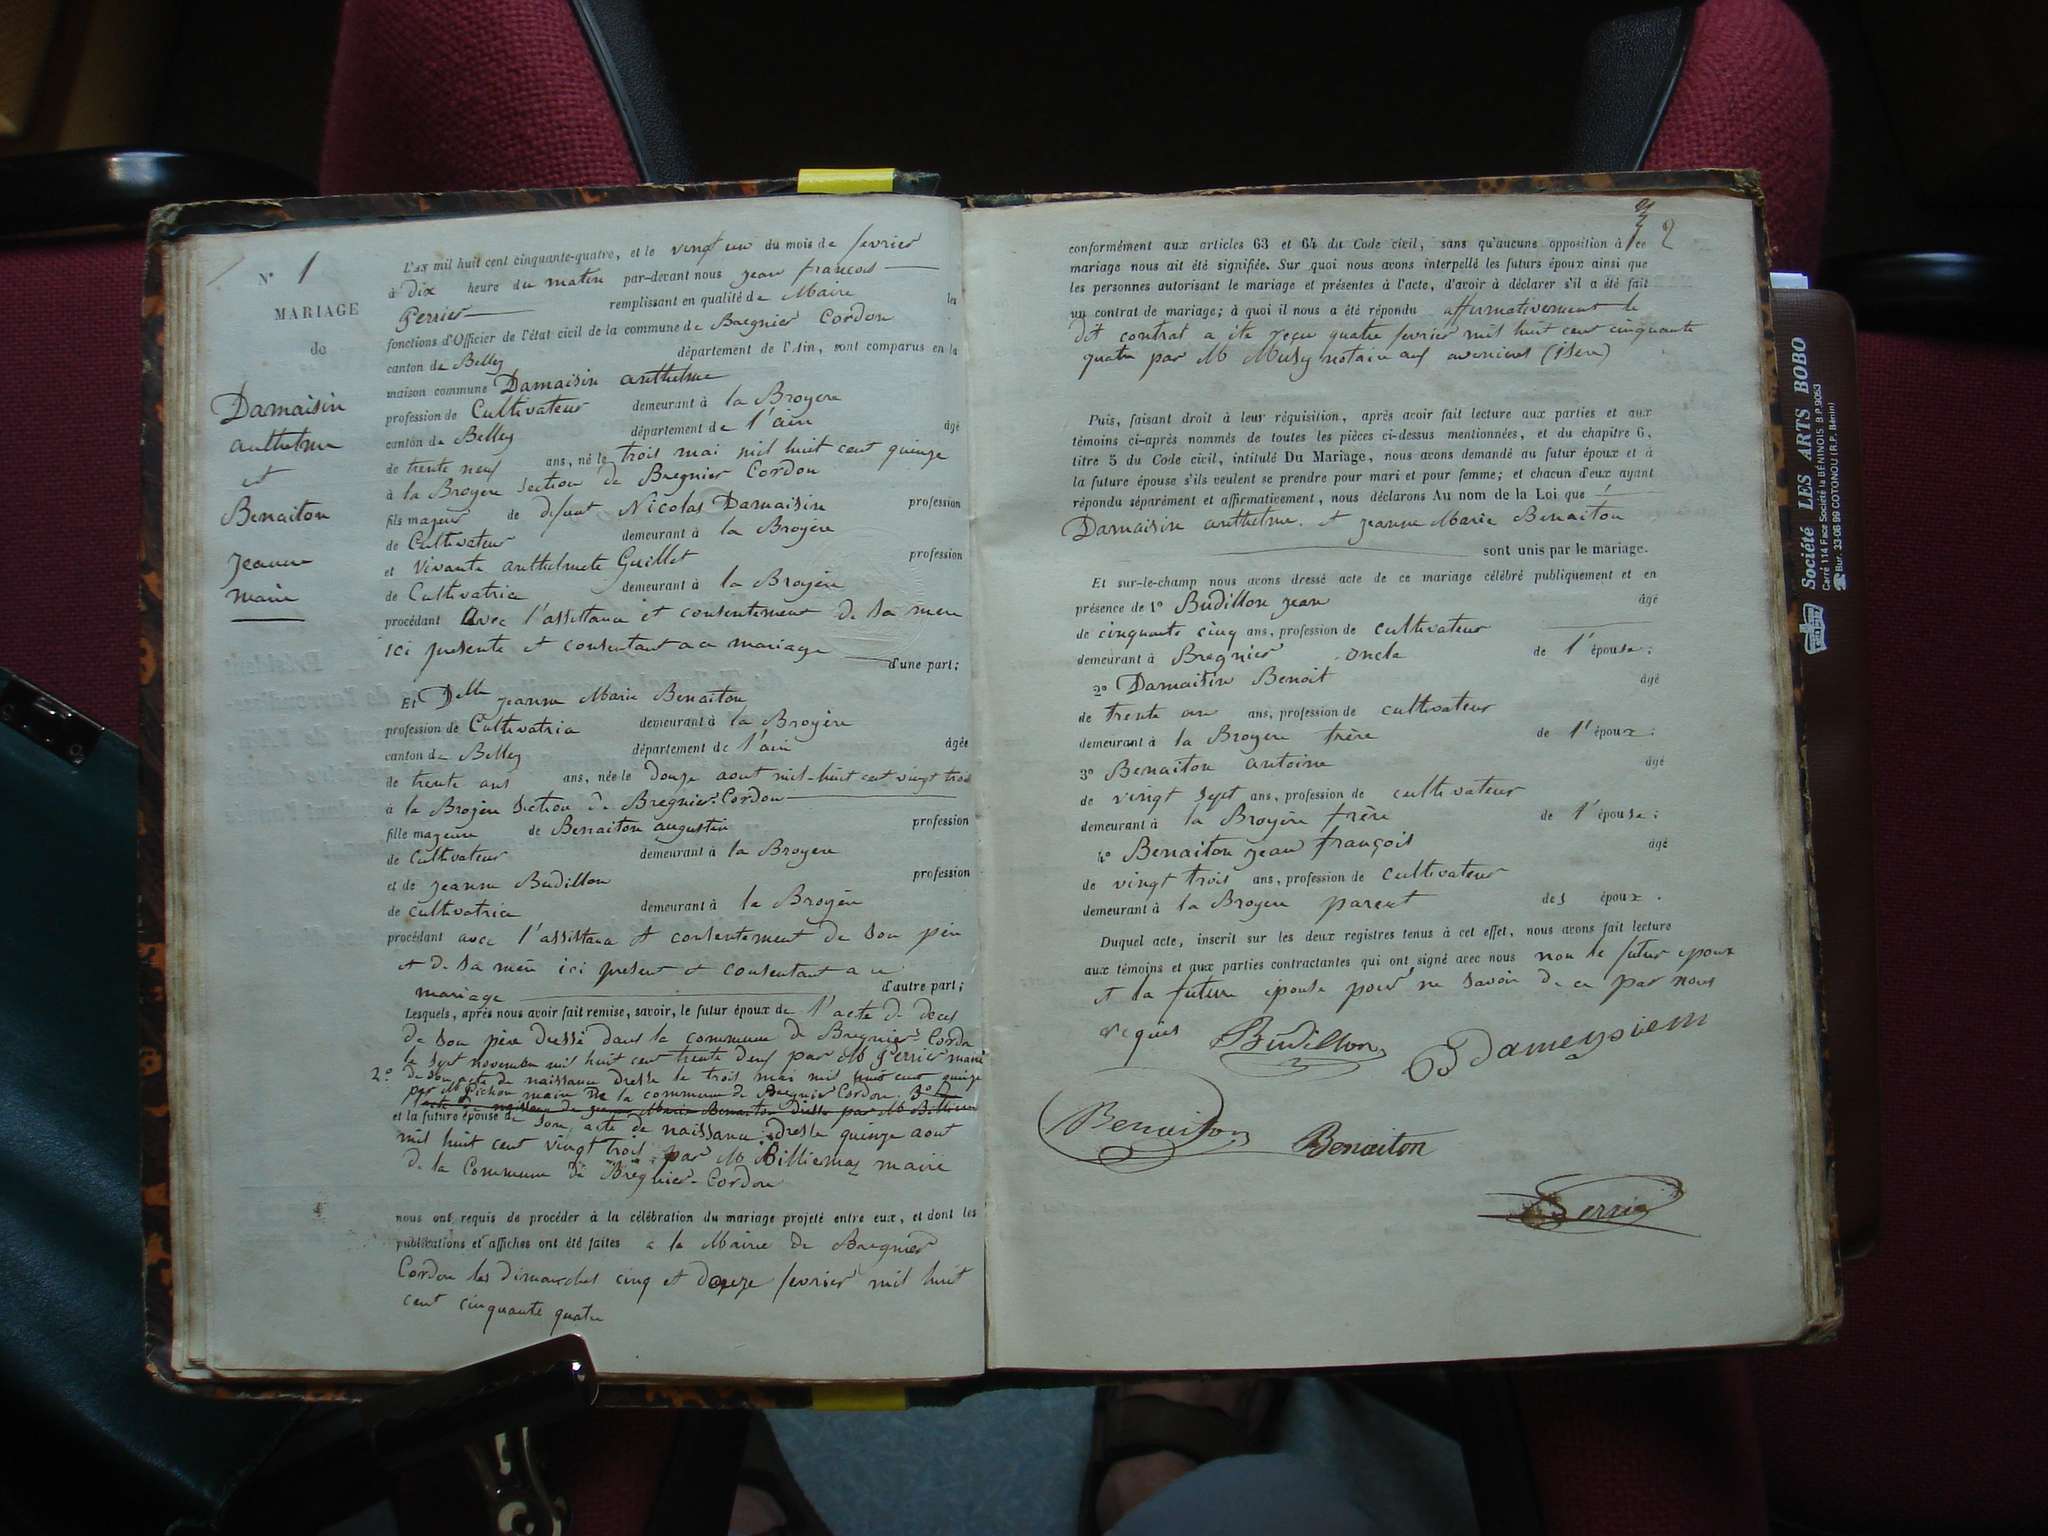 N° 1
MARIAGE
de
Damaisin
anthelme
et
Benaiton
Jeanne
marie
L'an mil huit cent cinquante-quatre, et le vingt un du mois de fevrier
à dix heure du matin par-devant nous jean francois
Perrier remplissant en qualité de Maire les
fonctions d'Officier de l'état civil de la commune de Bregnier Cordon
canton de Belley département de l'Ain, sont comparus en la
maison commune Damaisin anthelme
profession de Cultivateur demeurant à la Broyere
canton de Belley département de l'ain âgé
de trente neuf ans, né le trois mai mil huit cent quinze
à la Broyere section de Bregnier Cordon
fils majeur de defunt Nicolas Damaisin profession
de Cultivateur demeurant à la Broyère
et vivante anthelmete Guillot profession
de Cultivatrice demeurant à la Broyère
procédant avec l'assistance et consentement de sa mere
ici presente et consentant a ce mariage d'une part;
Et Delle jeanne Marie Benaiton
profession de Cultivatrice demeurant à la Broyère
canton de Belley département de l'ain âgée
de trente ans ans, née le Douze aout mil-huit cent vingt trois
à la Broyère section de Bregnier-Cordon
fille majeure de Benaiton augustin profession
de Cultivateur demeurant à la Broyere
et de jeanne Budillon profession
de Cultivatrice demeurant à la Broyère
procédant avec l'assistance et consentement de son père
et de sa mère ici present et consentant a ce
mariage d'autre part;
Lesquels, après nous avoir fait remise, savoir, le futur époux de l'acte de deces
de son père dressé dans la commune de Bregnier-Cordon
le sept novembre mil huit cent trente deux par M Perrier maire
2° de son acte de naissance dresse le trois mai mil huit cent quinze
par M Pichon maire de la commune de Bregnier Cordon. 3°
acte de naissance de jeanne Marie Benaiton dresse par M Billiemaz
et la future épouse de son acte de naissance dresse quinze aout
mil huit cent vingt trois par M Billiemaz maire
de la Commune de Bregnier-Cordon
nous ont requis de procéder à la célébration du mariage projeté entre eux, et dont les
publications et affiches ont été faites a la Mairie de Bregnier
Cordon les dimanches cinq et douze fevrier mil huit
cent cinquante quatre
2
conformément aux articles 63 et 64 du Code civil, sans qu'aucune opposition à ce
mariage nous ait été signifiée. Sur quoi nous avons interpellé les futurs époux ainsi que
les personnes autorisant le mariage et présentes à l'acte, d'avoir à déclarer s'il a été fait
un contrat de mariage; à quoi il nous a été répondu affirmativement le
dit contrat a ete reçu quatre fevrier mil huit cent cinquante
quatre par M Musy notaire aux avenieres (isere)
Puis, faisant droit à leur réquisition, après avoir fait lecture aux parties et aux
témoins ci-après nommés de toutes les pièces ci-dessus mentionnées, et du chapitre 6,
titre 5 du Code civil, intitulé Du Mariage, nous avons demandé au futur époux et à
la future épouse s'ils veulent se prendre pour mari et pour femme; et chacun d'eux ayant
répondu séparément et affirmativement, nous déclarons Au nom de la Loi que
Damaisin anthelme et jeanne Marie Benaiton
sont unis par le mariage.
Et sur-le-champ nous avons dressé acte de ce mariage célébré publiquement et en
présence de 1° Budillon jean âgé
de cinquante cinq ans, profession de cultivateur
demeurant à Bregnier oncle de l'épouse;
2° Damaisin Benoit âgé
de trente un ans, profession de cultivateur
demeurant à la Broyere frère de l'époux;
3° Benaiton antoine âgé
de vingt sept ans, profession de cultivateur
demeurant à la Broyère frère de l'épouse;
4° Benaiton jean françois âgé
de vingt trois ans, profession de cultivateur
demeurant à la Broyere parent des époux.
Duquel acte, inscrit sur les deux registres tenus à cet effet, nous avons fait lecture
aux témoins et aux parties contractantes qui ont signé avec nous non le futur epoux
et la future epouse pour ne savoir de ce par nous
requis Budillon B Dameysiem
Benaiton Benaiton
Perrier
Société LES ARTS BOBO
Carré 114 Face Société la BÉNINOIS B.P. 9053
Bur. 33-06 99 COTONOU (R.P. Bénin)